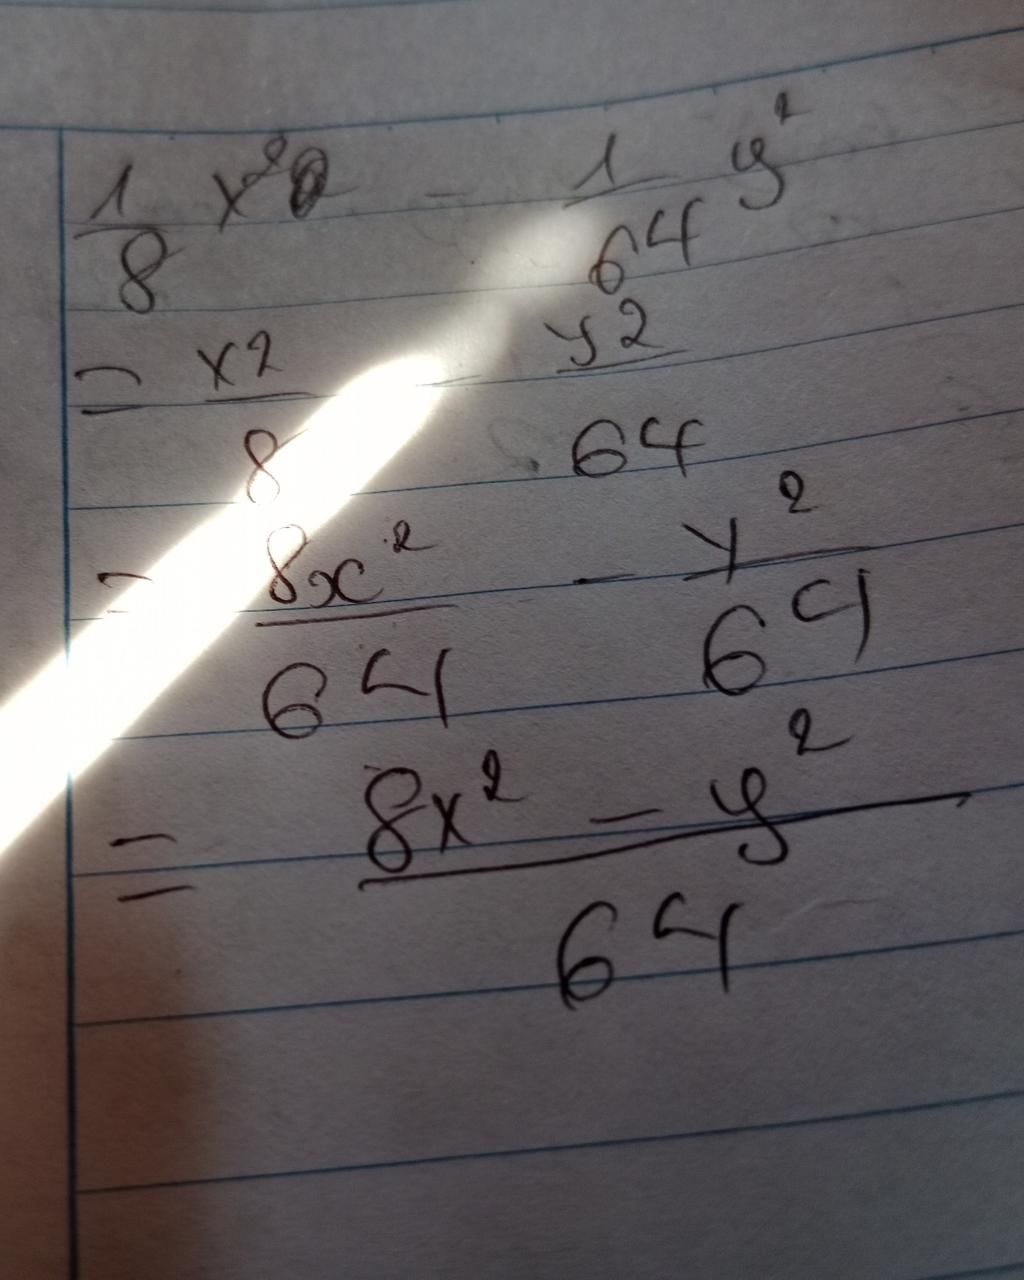 1/8 x² - 1/64 y²
= x2/8 - y2/64
= 8x²/64 - y²/64
= 8x² - y²/64